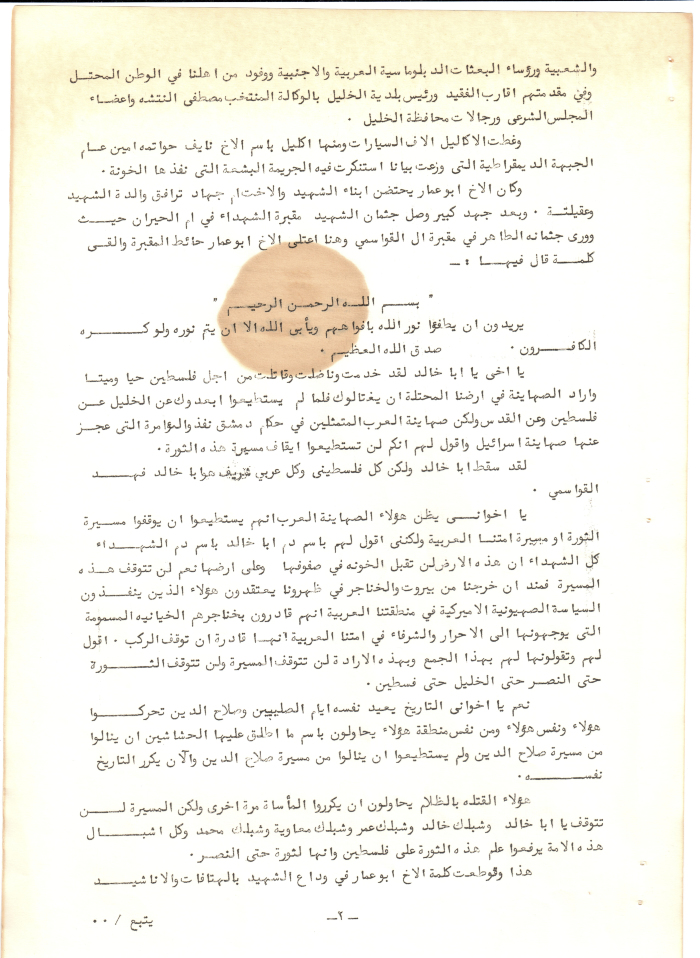 والشعبية ورؤساء البعثات الدبلوماسية العربية والاجنبية ووفود من اهلنا في الوطن المحتل
وفي مقدمتهم اقارب الفقيد ورئيس بلدية الخليل بالوكالة المنتخب مصطفى النتشه واعضاء
المجلس الشرعي ورجالات محافظة الخليل .
وغطت الاكاليل الاف السيارات ومنها اكليل باسم الاخ نايف حواتمه امين عام
الجبهة الديمقراطية التى وزعت بيانا استنكرت فيه الجريمة البشعة التى نفذها الخونة .
وكان الاخ ابوعمار يحتضن ابناء الشهيد والاخت ام جهاد ترافق والدة الشهيد
وعقيلتة . وبعد جهد كبير وصل جثمان الشهيد مقبرة الشهداء في ام الحيران حيث
وورى جثمانه الطاهر في مقبرة ال القواسمي وهنا اعتلى الاخ ابوعمار حائط المقبرة والقى
كلمة قال فيها :ـ
" بسم اللـه الرحمن الرحيم "
يريدون ان يطفؤا نور الله بافواههم ويأبى الله الا ان يتم نوره ولو كره
الكافرون . صدق الله العظيم .
يا اخى يا ابا خالد لقد خدمت وناضلت وقاتلت من اجل فلسطين حيا وميتا
واراد الصهاينة في ارضنا المحتلة ان يغتالوك فلما لم يستطيعوا ابعدوك عن الخليل عن
فلسطين وعن القدس ولكن صهاينة العرب المتمثلين في حكام دمشق نفذوا المؤامرة التى عجز
عنها صهاينة اسرائيل واقول لهم انكم لن تستطيعوا ايقاف مسيرة هذه الثورة .
لقد سقط ابا خالد ولكن كل فلسطينى وكل عربي شريف هو ابا خالد فهد
القواسمي .
يا اخوانى يظن هؤلاء الصهاينة العرب انهم يستطيعوا ان يوقفوا مسيرة
الثورة او مسيرة امتنا العربية ولكننى اقول لهم باسم دم ابا خالد باسم دم الشهداء
كل الشهداء ان هذه الارض لن تقبل الخونه في صفوفها وعلى ارضها نعم لن تتوقف هذه
المسيرة فمنذ ان خرجنا من بيروت والخناجر في ظهرونا يعتقدون هؤلاء الذين ينفذون
السياسة الصهيونية الاميركية في منطقتنا العربية انهم قادرون بخناجرهم الخيانيه المسمومة
التى يوجهونها الى الاحرار والشرفاء في امتنا العربية انها قادرة ان توقف الركب . اقول
لهم وتقولونها لهم بهذا الجمع وبهذه الارادة لن تتوقف المسيرة ولن تتوقف الثورة
حتى النصر حتى الخليل حتى فسطين .
نعم يا اخوانى التاريخ يعيد نفسه ايام الصليبيين وصلاح الدين تحركوا
هؤلاء ونفس هؤلاء ومن نفس منطقة هؤلاء يحاولون باسم ما اطلق عليها الحشاشين ان ينالوا
من مسيرة صلاح الدين ولم يستطيعوا ان ينالوا من مسيرة صلاح الدين والآن يكرر التاريخ
نفسه .
هؤلاء القتله بالظلام يحاولون ان يكرروا المأساة مرة اخرى ولكن المسيرة لن
تتوقف يا ابا خالد وشبلك خالد وشبلك عمر وشبلك معاوية وشبلك محمد وكل اشبال
هذه الامة يرفعوا علم هذه الثورة على فلسطين وانها لثورة حتى النصر .
هذا وقوطعت كلمة الاخ ابوعمار في وداع الشهيد بالهتافات والاناشيد
ـ٢ـ
يتبع / ٠٠